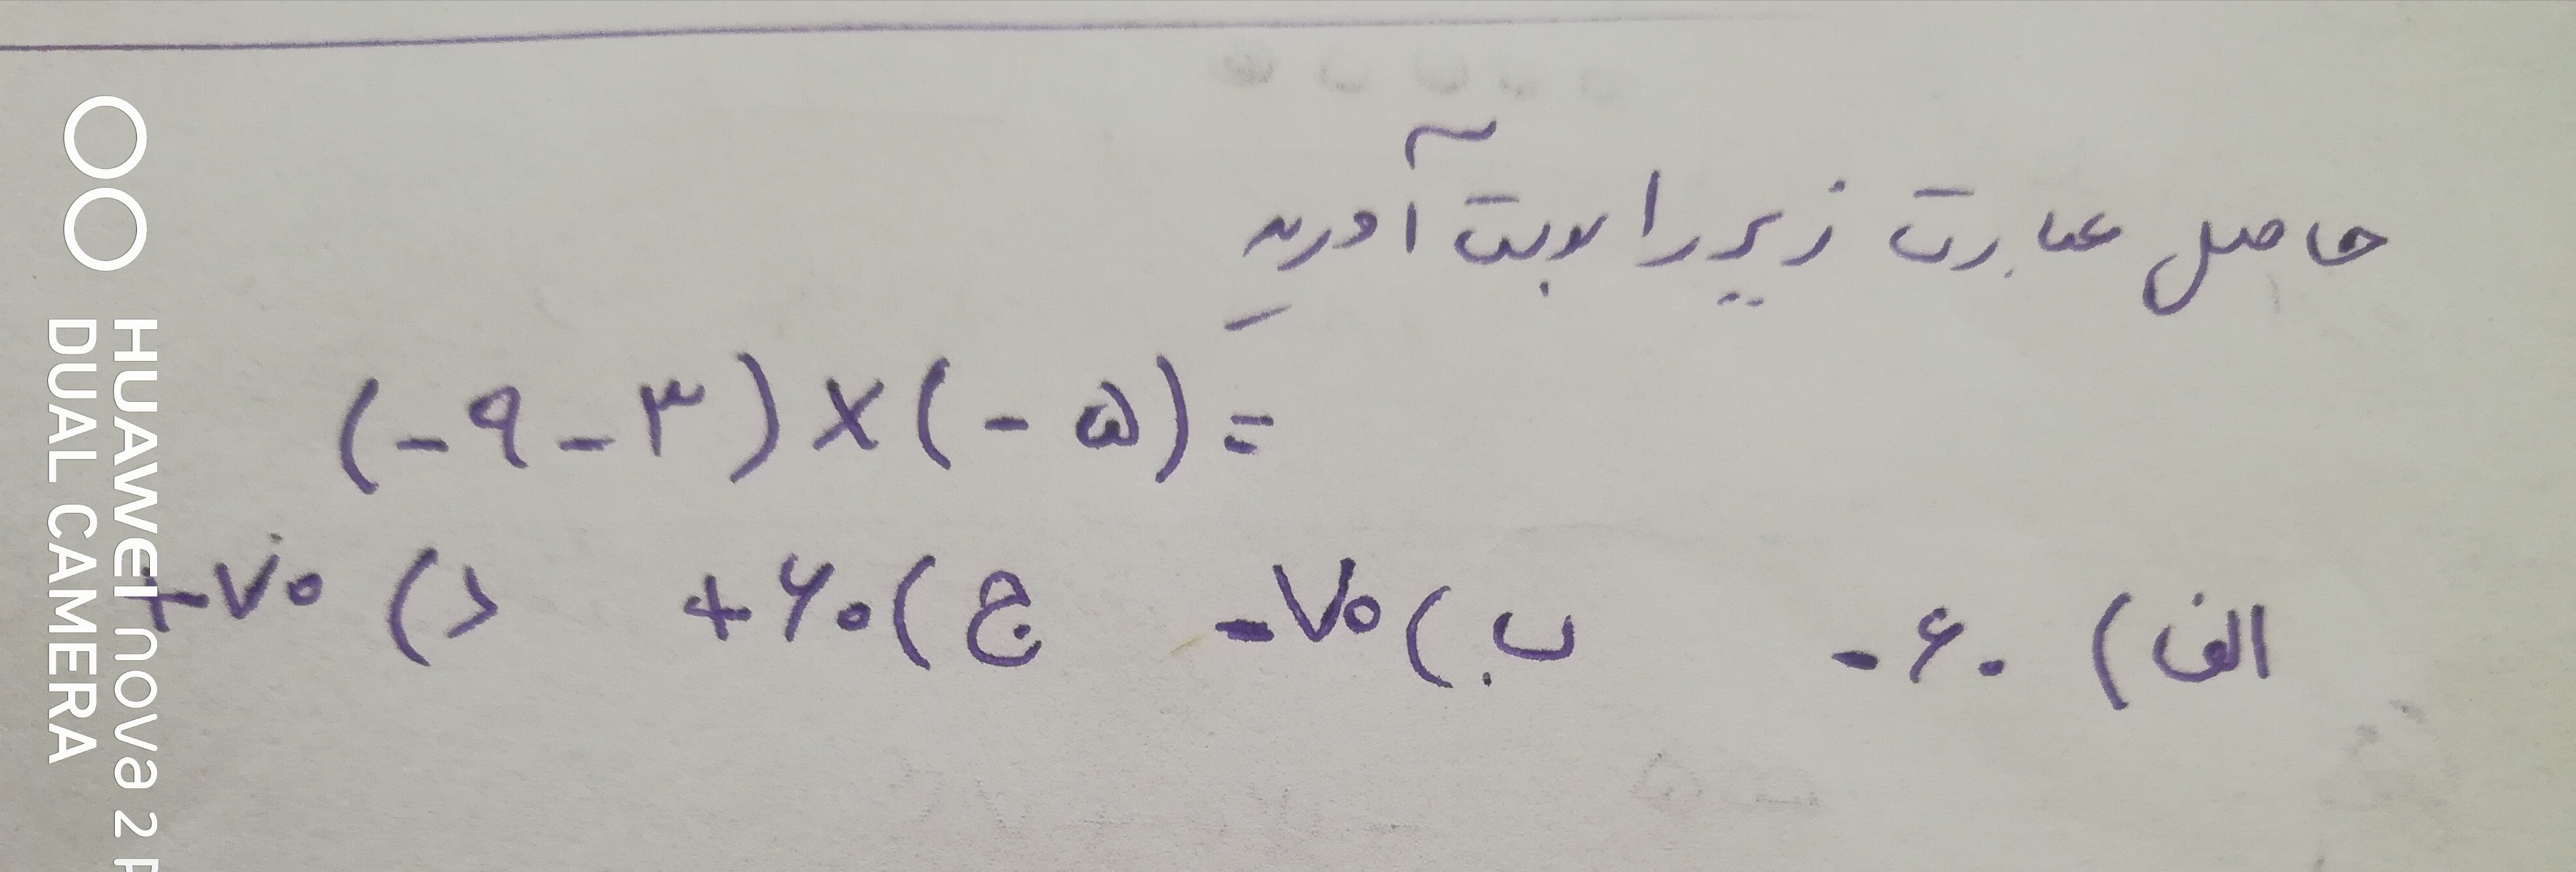 حاصل عبارت زیر را بدست آورید
(-۹-۳)×(-۵)=
الف) -۶۰ ب) -۷۰ ج) +۶۰ د) +۷۰
HUAWEI nova 2 P
DUAL CAMERA